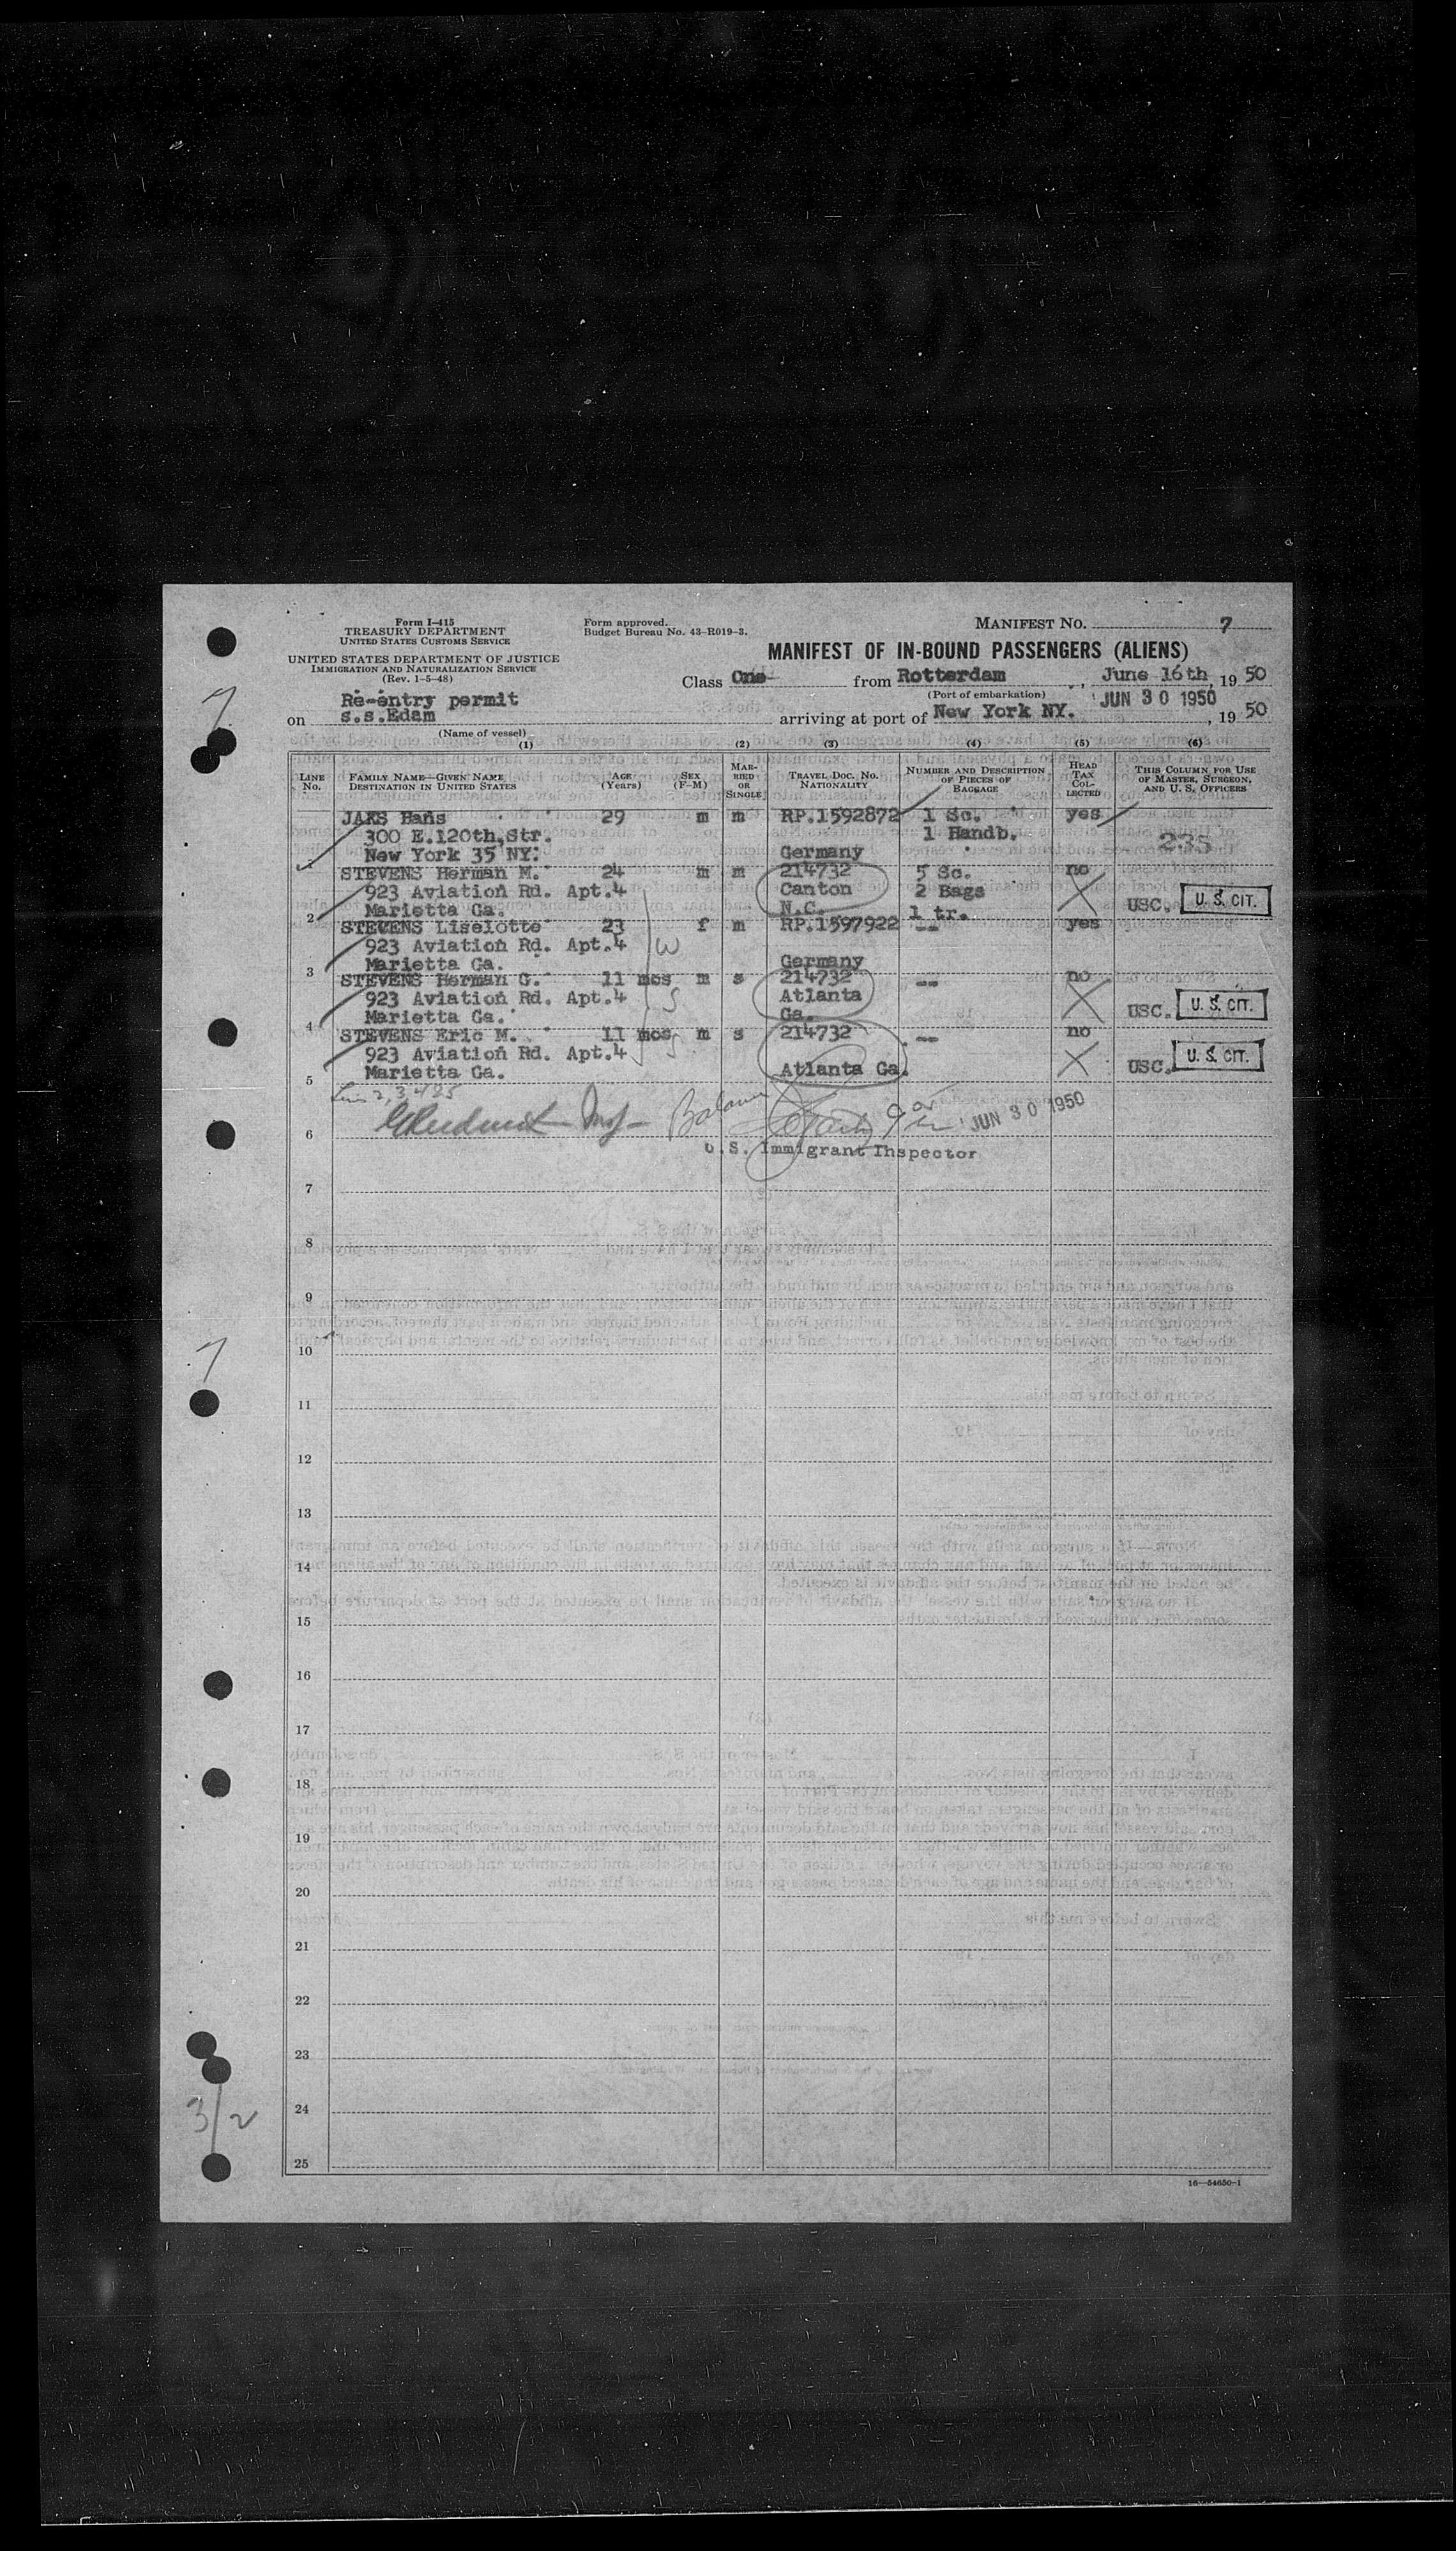 Form I-415
TREASURY DEPARTMENT
UNITED STATES CUSTOMS SERVICE
UNITED STATES DEPARTMENT OF JUSTICE
IMMIGRATION AND NATURALIZATION SERVICE
(Rev. 1-5-48)
Form approved.
Budget Bureau No. 43-R019-3.
MANIFEST NO. 7
MANIFEST OF IN-BOUND PASSENGERS (ALIENS)
Class One from Rotterdam, June 16th, 19 50
(Port of embarkation)
Re-entry permit
on s.s.Edam arriving at port of New York NY. JUN 30 1950, 19 50
(Name of vessel)
(1) (2) (3) (4) (5) (6)
LINE No. FAMILY NAME—GIVEN NAME DESTINATION IN UNITED STATES AGE (Years) SEX (F-M) MARRIED OR SINGLE TRAVEL DOC. NO. NATIONALITY NUMBER AND DESCRIPTION OF PIECES OF BAGGAGE HEAD TAX COLLECTED THIS COLUMN FOR USE OF MASTER, SURGEON, AND U. S. OFFICERS
JAKS Hans 29 m m RP.1592872 1 Sc. yes
300 E.120th,Str. 1 Handb. 235
1 New York 35 NY. Germany
STEVENS Herman M. 24 m m 214732 5 Sc. no
923 Aviation Rd. Apt.4 Canton 2 Bags
2 Marietta Ga. N.C. 1 tr. USC. U. S. CIT.
STEVENS Liselotte 23 f m RP.1597922 -- yes
923 Aviation Rd. Apt.4 W
3 Marietta Ga. Germany
STEVENS Herman G. 11 mos m s 214732 -- no
923 Aviation Rd. Apt.4 S Atlanta
4 Marietta Ga. Ga. USC. U. S. CIT.
STEVENS Eric M. 11 mos m s 214732 -- no
923 Aviation Rd. Apt.4 S
5 Marietta Ga. Atlanta Ga. USC. U. S. CIT.
Balance JUN 30 1950
6 U.S. Immigrant Inspector
7
8
9
10
11
12
13
14
15
16
17
18
19
20
21
22
23
24
25
3/2
16—54650-1